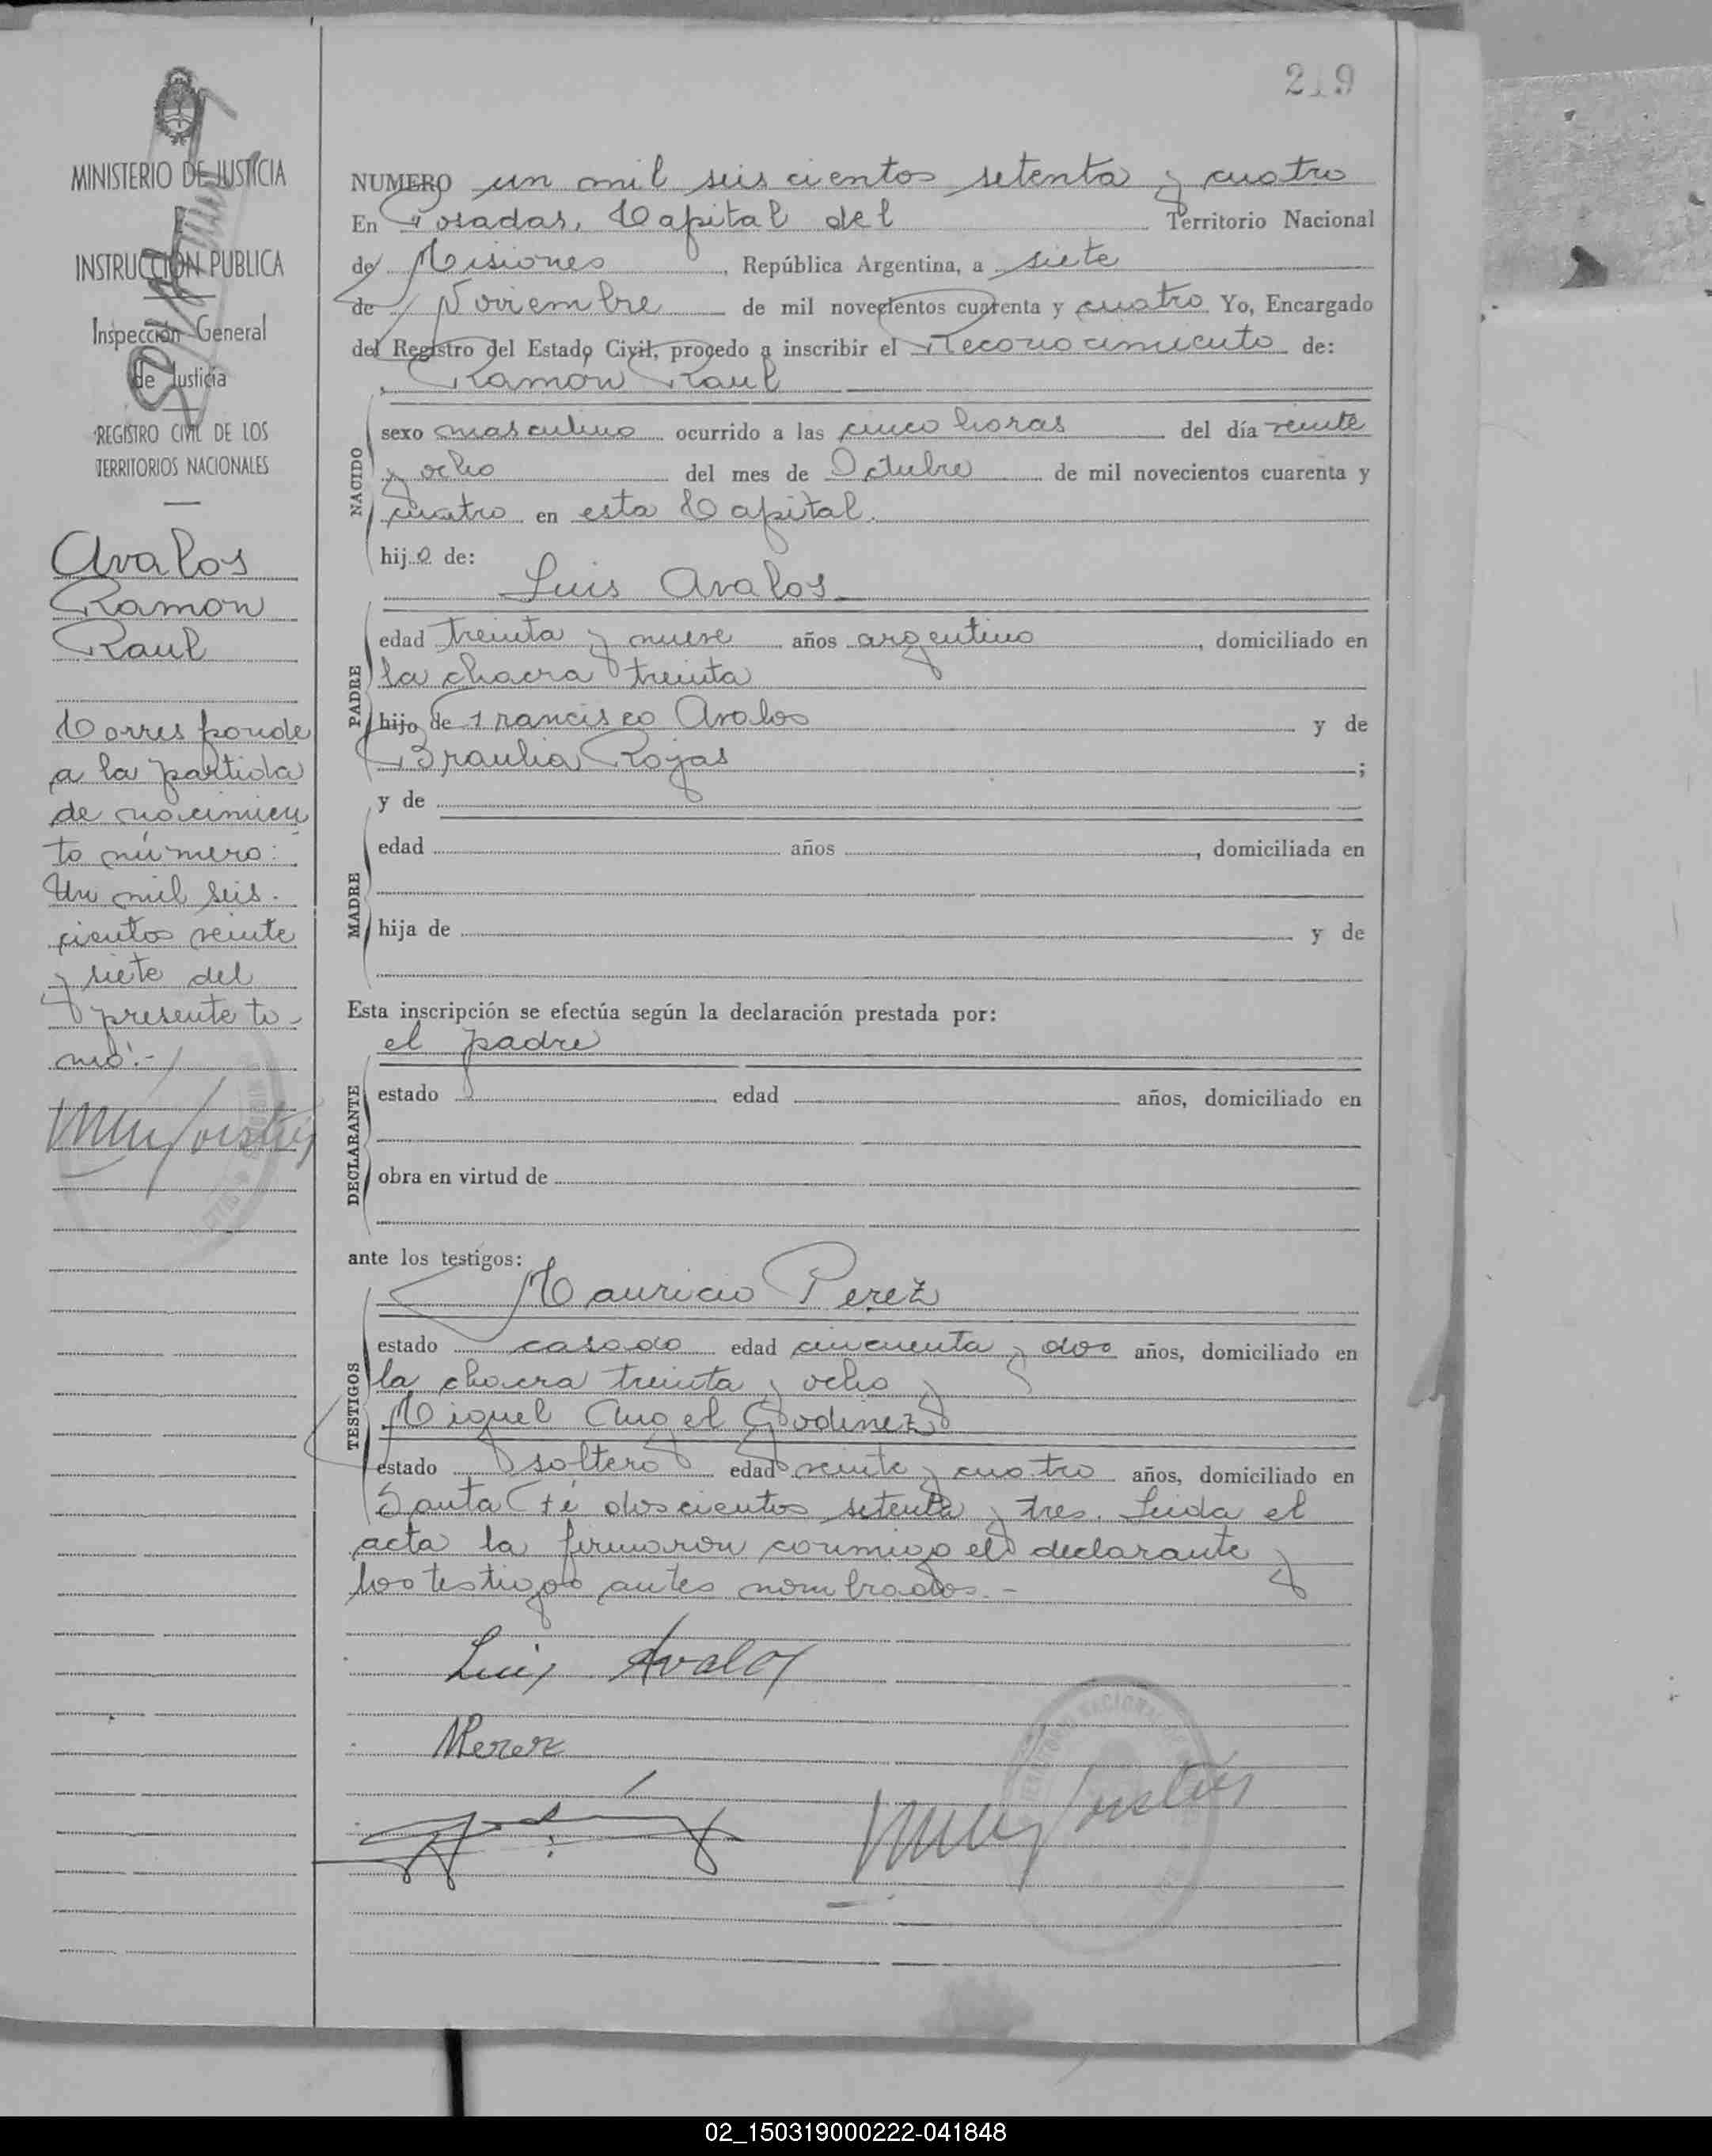 219
MINISTERIO DE JUSTICIA
E
INSTRUCCIÓN PUBLICA
Inspección General
de Justicia
REGISTRO CIVIL DE LOS
TERRITORIOS NACIONALES
Avalos
Ramon
Raul
Corresponde
a la partida
de nacimien
to número:
Un mil seis-
cientos veinte
y siete del
presente to-
mo.-
NUMERO un mil seis cientos setenta y cuatro
En Posadas, Capital del Territorio Nacional
de Misiones, República Argentina, a siete
de Noviembre de mil novecientos cuarenta y cuatro Yo, Encargado
del Registro del Estado Civil, procedo a inscribir el Reconocimiento de:
Ramón Raul
NACIDO
sexo masculino ocurrido a las cinco horas del día veinte
y ocho del mes de Octubre de mil novecientos cuarenta y
cuatro en esta Capital.
hijo de:
Luis Avalos
PADRE
edad treinta y nueve años argentino, domiciliado en
la chacra treinta
hijo de Francisco Avalos y de
Braulia Rojas;
y de
MADRE
edad años, domiciliada en
hija de y de
Esta inscripción se efectúa según la declaración prestada por:
el padre
DECLARANTE
estado edad años, domiciliado en
obra en virtud de
ante los testigos:
Mauricio Perez
TESTIGOS
estado casado edad cincuenta y dos años, domiciliado en
la chacra treinta y ocho y
Miguel Angel Godinez
estado soltero edad veinte y cuatro años, domiciliado en
Santa Fé doscientos setenta y tres. Leida el
acta la firmaron conmigo el declarante y
los testigos antes nombrados.-
Luis Avalos
MPerez
02_150319000222-041848